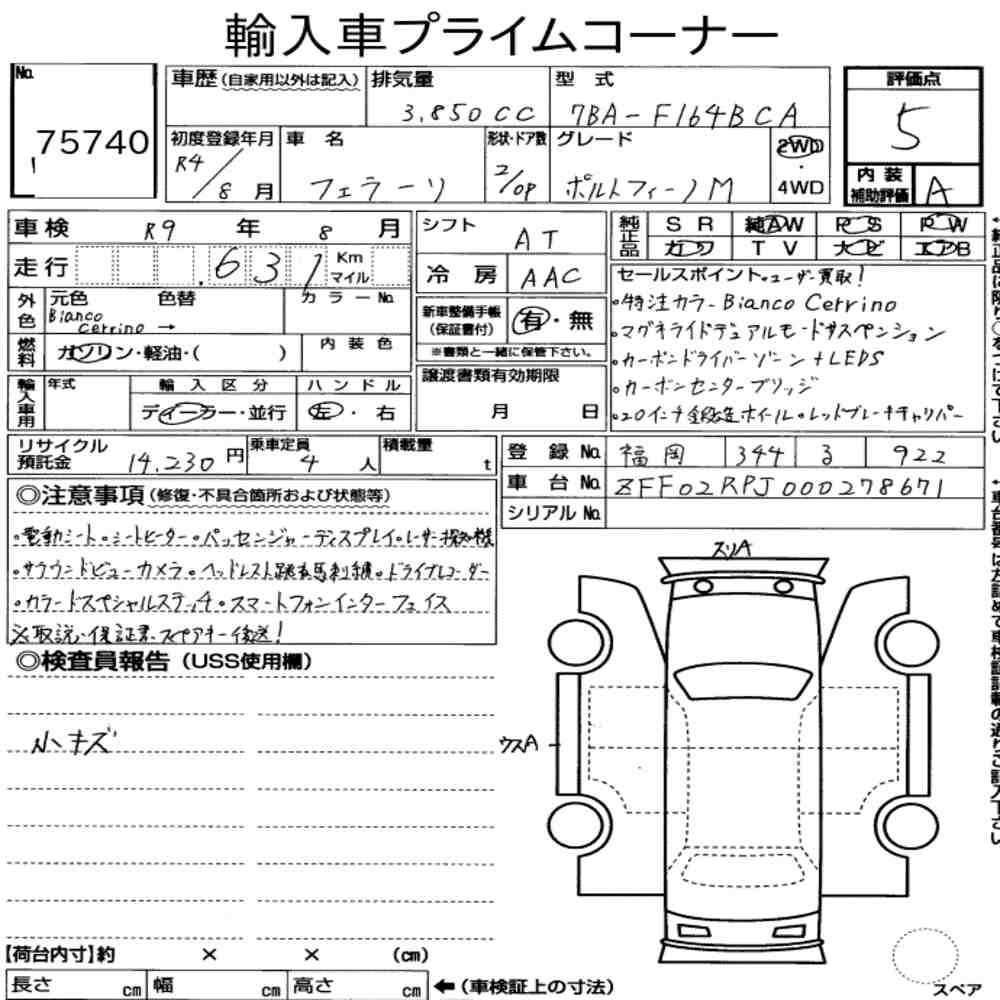 輸入車プライムコーナー
No.
75740
車歴(自家用以外は記入)
排気量
3,850CC
型 式
7BA-F164BCA
評価点
5
初度登録年月
R4/8月
車 名
フェラーリ
形状・ドア数
2/OP
グレード
ポルトフィーノM
2WD
・
4WD
内装
補助評価
A
車検 R9 年 8 月
走行 631 Km マイル
シフト
AT
冷房
AAC
純正品
SR 純AW PS PW
カワ TV ナビ エアB
外色
元色 色替
Bianco
Cerrino →
カラーNo.
燃料
ガソリン・軽油・( )
内装色
新車整備手帳
(保証書付)
有・無
※書類と一緒に保管下さい。
セールスポイント。ユーザー買取!
・特注カラーBianco Cerrino
・マグネライドデュアルモードサスペンション
・カーボンドライバーゾーン+LEDS
・カーボンセンターブリッジ
・20インチ鍛造ホイール・レッドブレーキキャリパー
輸入車用
年式
輸入区分
ディーラー・並行
ハンドル
左・右
譲渡書類有効期限
月 日
リサイクル
預託金
14,230円
乗車定員
4人
積載量
t
登録No. 福岡 344 る 922
車台No. ZFF02RPJ000278671
シリアルNo.
◎注意事項(修復・不具合箇所および状態等)
・電動シート・シートヒーター・パッセンジャーディスプレイ・レーザー探知機
・サラウンドビューカメラ・ヘッドレスト跳ね馬刺繍・ドライブレコーダー
・カラードスペシャルステッチ・スマートフォンインターフェイス
※取説・保証書・スペアキー後送!
◎検査員報告(USS使用欄)
小キズ
スリA
ウスA
【荷台内寸】約 × × (cm)
長さ cm 幅 cm 高さ cm ←(車検証上の寸法)
スペア